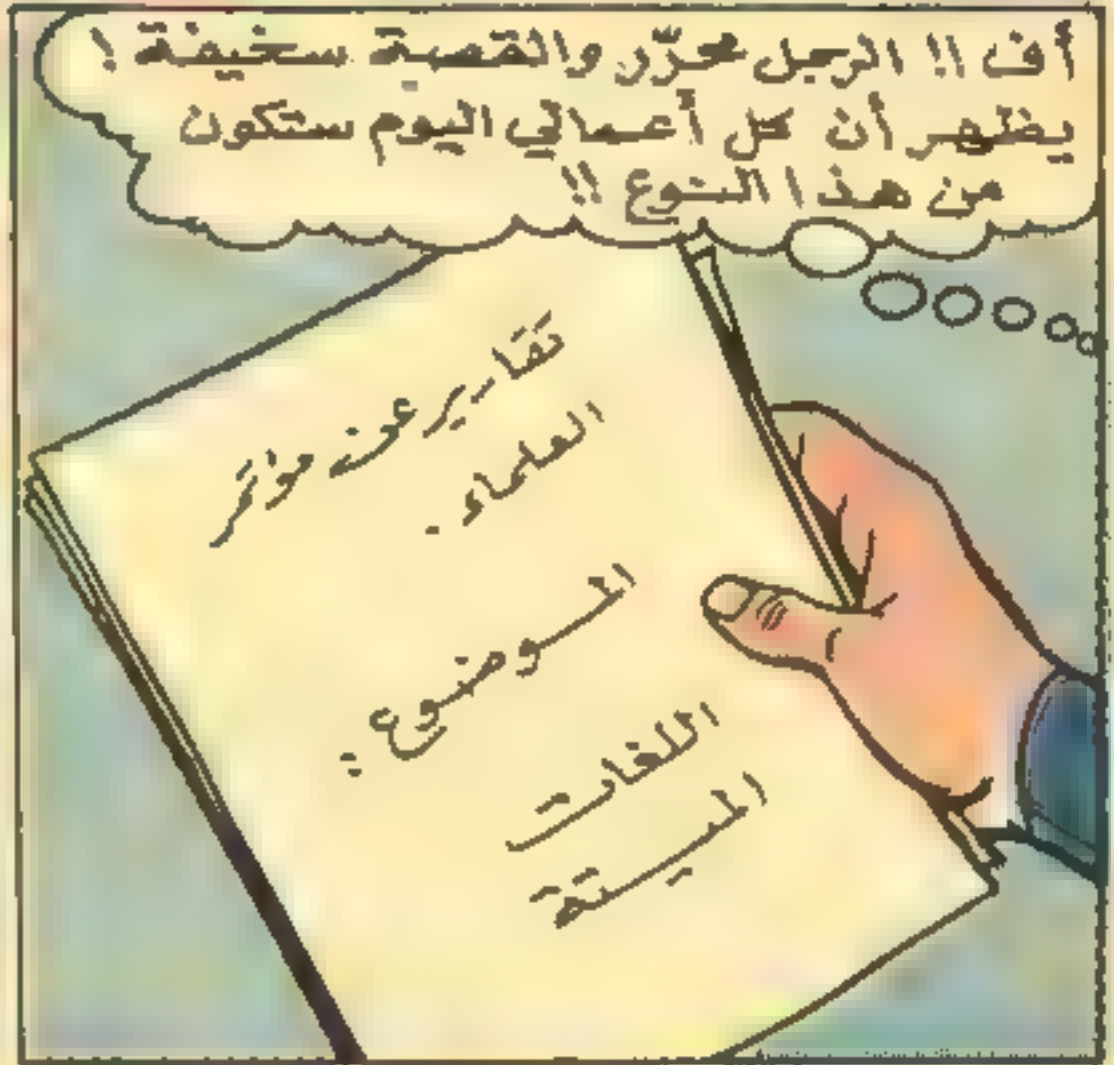 أف !! الرجل محرّر والقصة سخيفة !
يظهر أن كل أعمالي اليوم ستكون
من هذا النوع !!
تقارير عن مؤتمر
العلماء .
الموضوع :
اللغات
الميتة